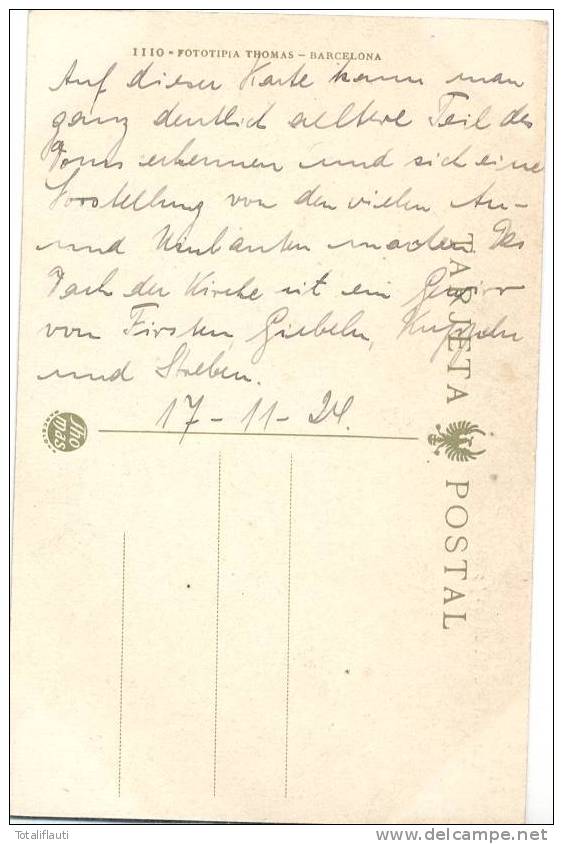 1110 - FOTOTIPIA THOMAS - BARCELONA
Auf dieser Karte kann man
ganz deutlich aeltere Teil des
Doms erkennen und sich eine
Vorstellung von den vielen An-
und Umbauten machen. Das
Dach der Kirche ist ein Gewirr
von Firsten, Giebeln, Kuppeln
und Streben.
17-11-24.
Thomas
BARCELONA
TARJETA POSTAL
Totaliflauti
www.delcampe.net